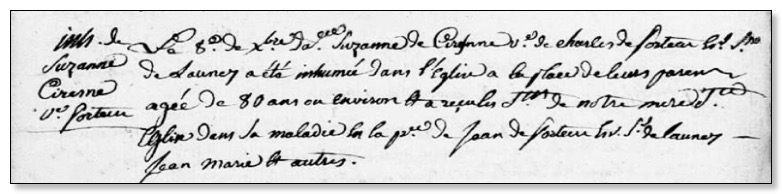 inh. de
Suzanne
Ciresne
v.e forteur
Le 8.e de xbre d.elle Suzanne de Ciresne v.e de charles de forteur
de Launez a été inhumée dans l'Eglise a la place de leurs parens
agée de 80 ans ou environ et a reçu les de notre mere
l'Eglise dans sa maladie en la p.ce de jean de forteur S.r de launez —
jean marie et autres.